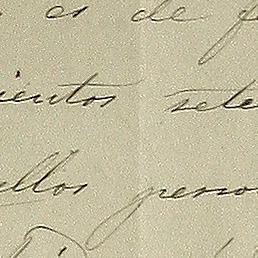 es de fe
ientos sete
ellos perso